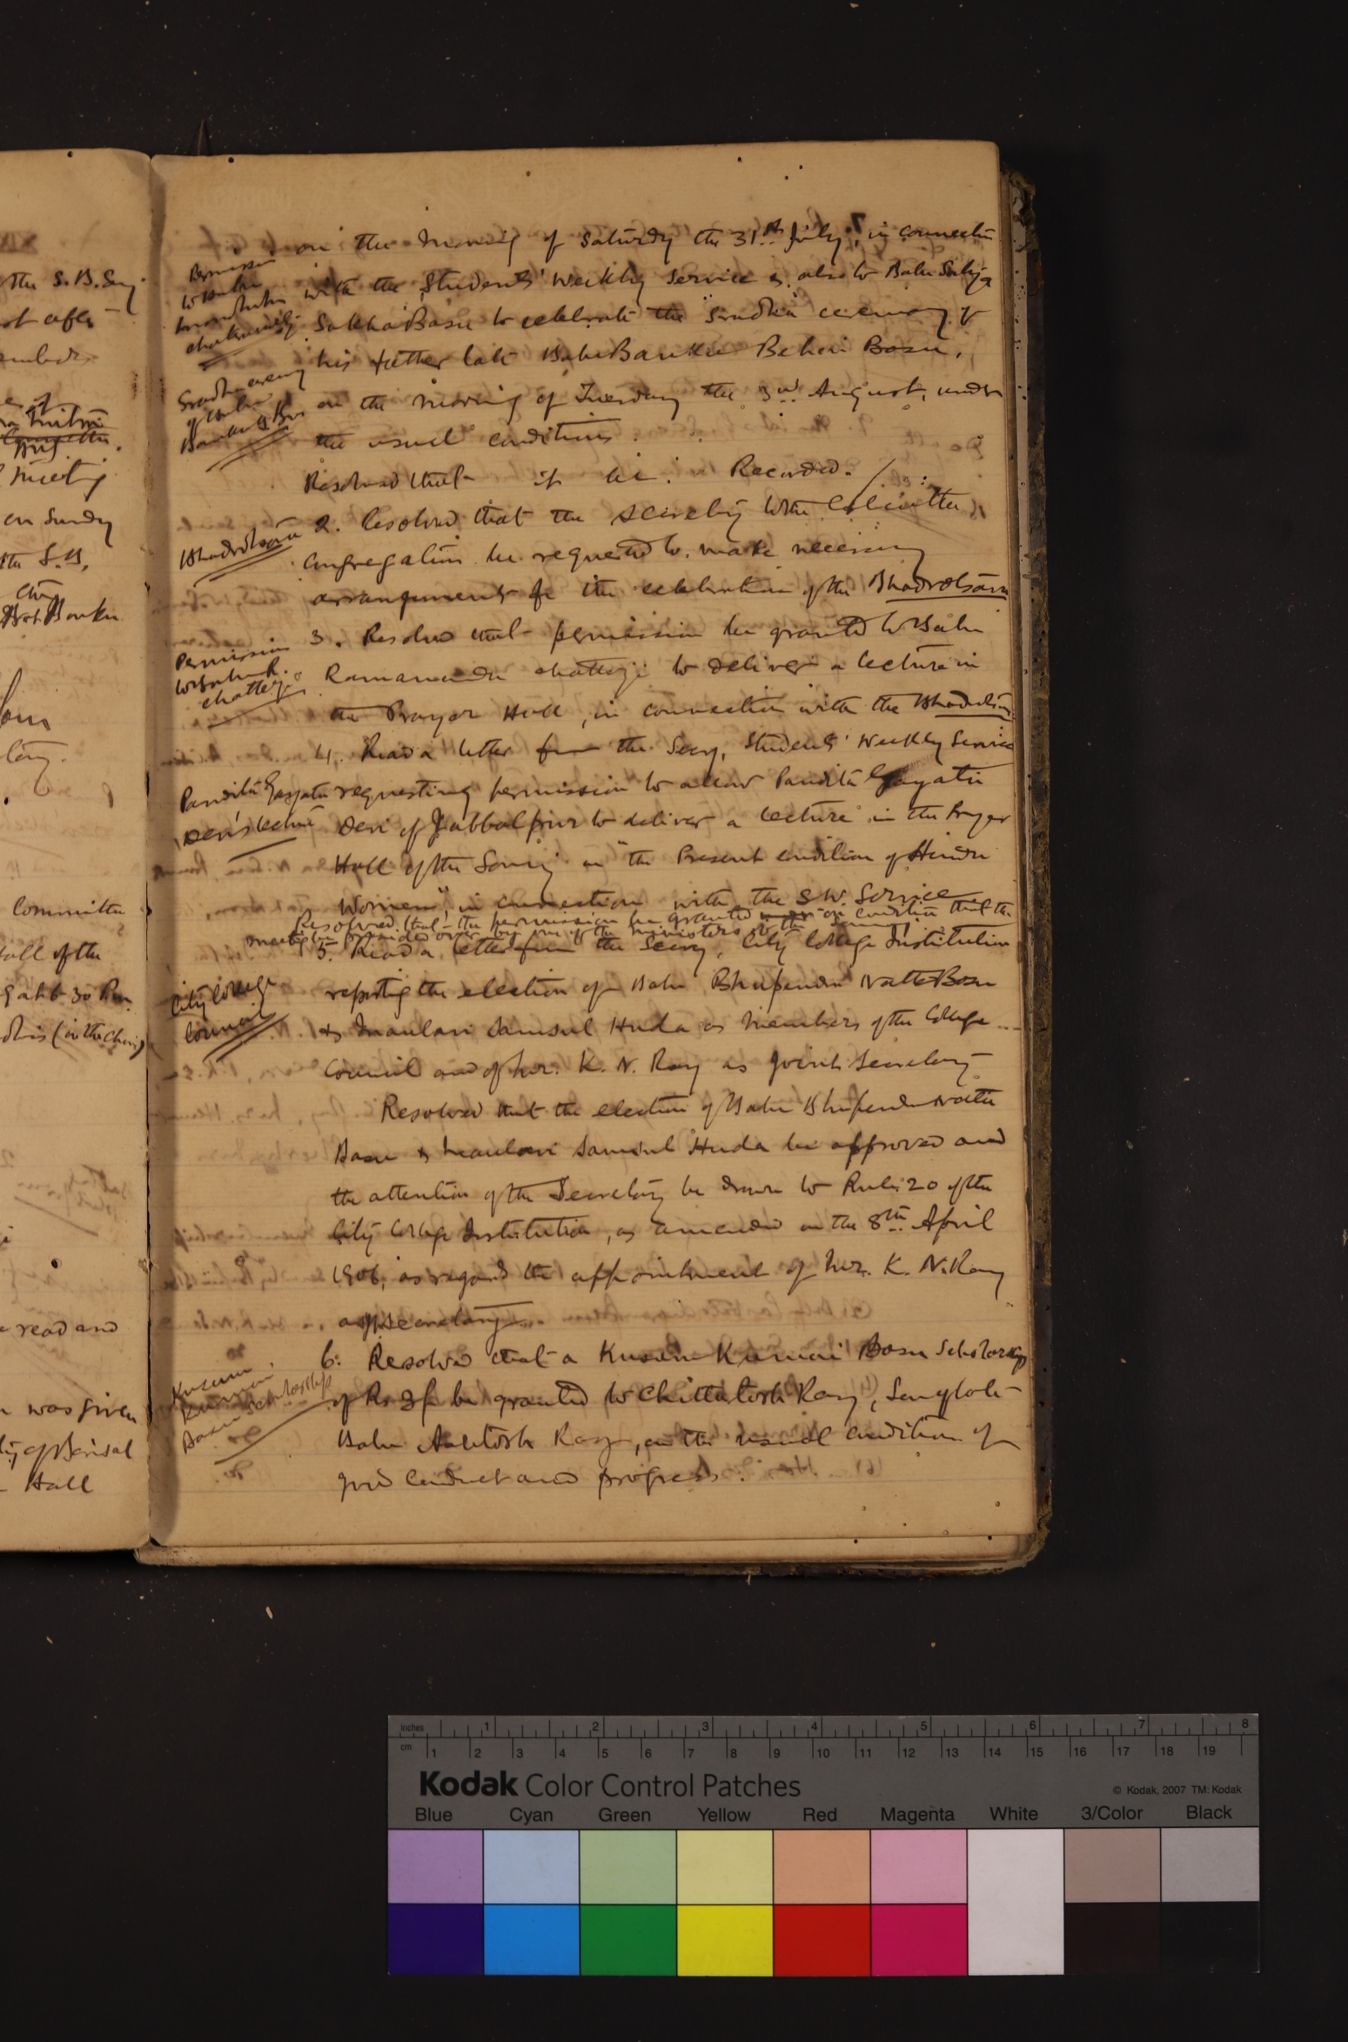 the S.B.
Committee
Hall of the
(in the Chair)
read and
was given
Hall
on the morning of Saturday the 31st July, in connection
with the Students' Weekly Service & also to Babu Satya
Sakha Basu to celebrate the "Sradha" ceremony of
his father late Babu Banku Behari Basu,
on the morning of Tuesday the 3rd August, under
the usual conditions.
Resolved that it be Recorded.
Bhadrotsava
2. Resolved that the secretary to the Calcutta
Congregation be requested to make necessary
arrangements for the celebration of the Bhadrotsava
Permission
to Babu R.
Chatterji
3. Resolved that permission be granted to Babu
Ramananda Chatterji to deliver a lecture in
the Prayer Hall, in connection with the Bhadrotsava
4. Read a letter from the Secy, Students' Weekly Service
Pandita Gayatri
Devi's lecture
requesting permission to allow Pandita Gayatri
Devi of Jabbalpur to deliver a lecture in the Prayer
Hall of the Samaj on "the Present condition of Hindu
Women" in connection with the S.W. Service
Resolved that the permission be granted on condition that the
meeting be presided over by one of the ministers of the Samaj
5. Read a letter from the Secy, City College Institution
City College
Council
reporting the election of Babu Bhupendra Nath Basu
& Maulavi Samsul Huda as Members of the College
Council and of Mr. K. N. Ray as Joint Secretary
Resolved that the election of Babu Bhupendra Nath
Basu & Maulavi Samsul Huda be approved and
the attention of the Secretary be drawn to Rule 20 of the
City College Institution, as amended on the 8th April
1906, as regards the appointment of Mr. K. N. Ray
as Jt secretary
Kusum
Kumari
Basu Scholarship
6. Resolved that a Kusum Kumari Basu Scholarship
of Rs 3/- be granted to Chittatosh Ray, Son of late
Babu Ashutosh Ray, on the usual condition of
good conduct and progress.
inches 1 2 3 4 5 6 7 8
cm 1 2 3 4 5 6 7 8 9 10 11 12 13 14 15 16 17 18 19
Kodak Color Control Patches
© Kodak, 2007 TM: Kodak
Blue Cyan Green Yellow Red Magenta White 3/Color Black